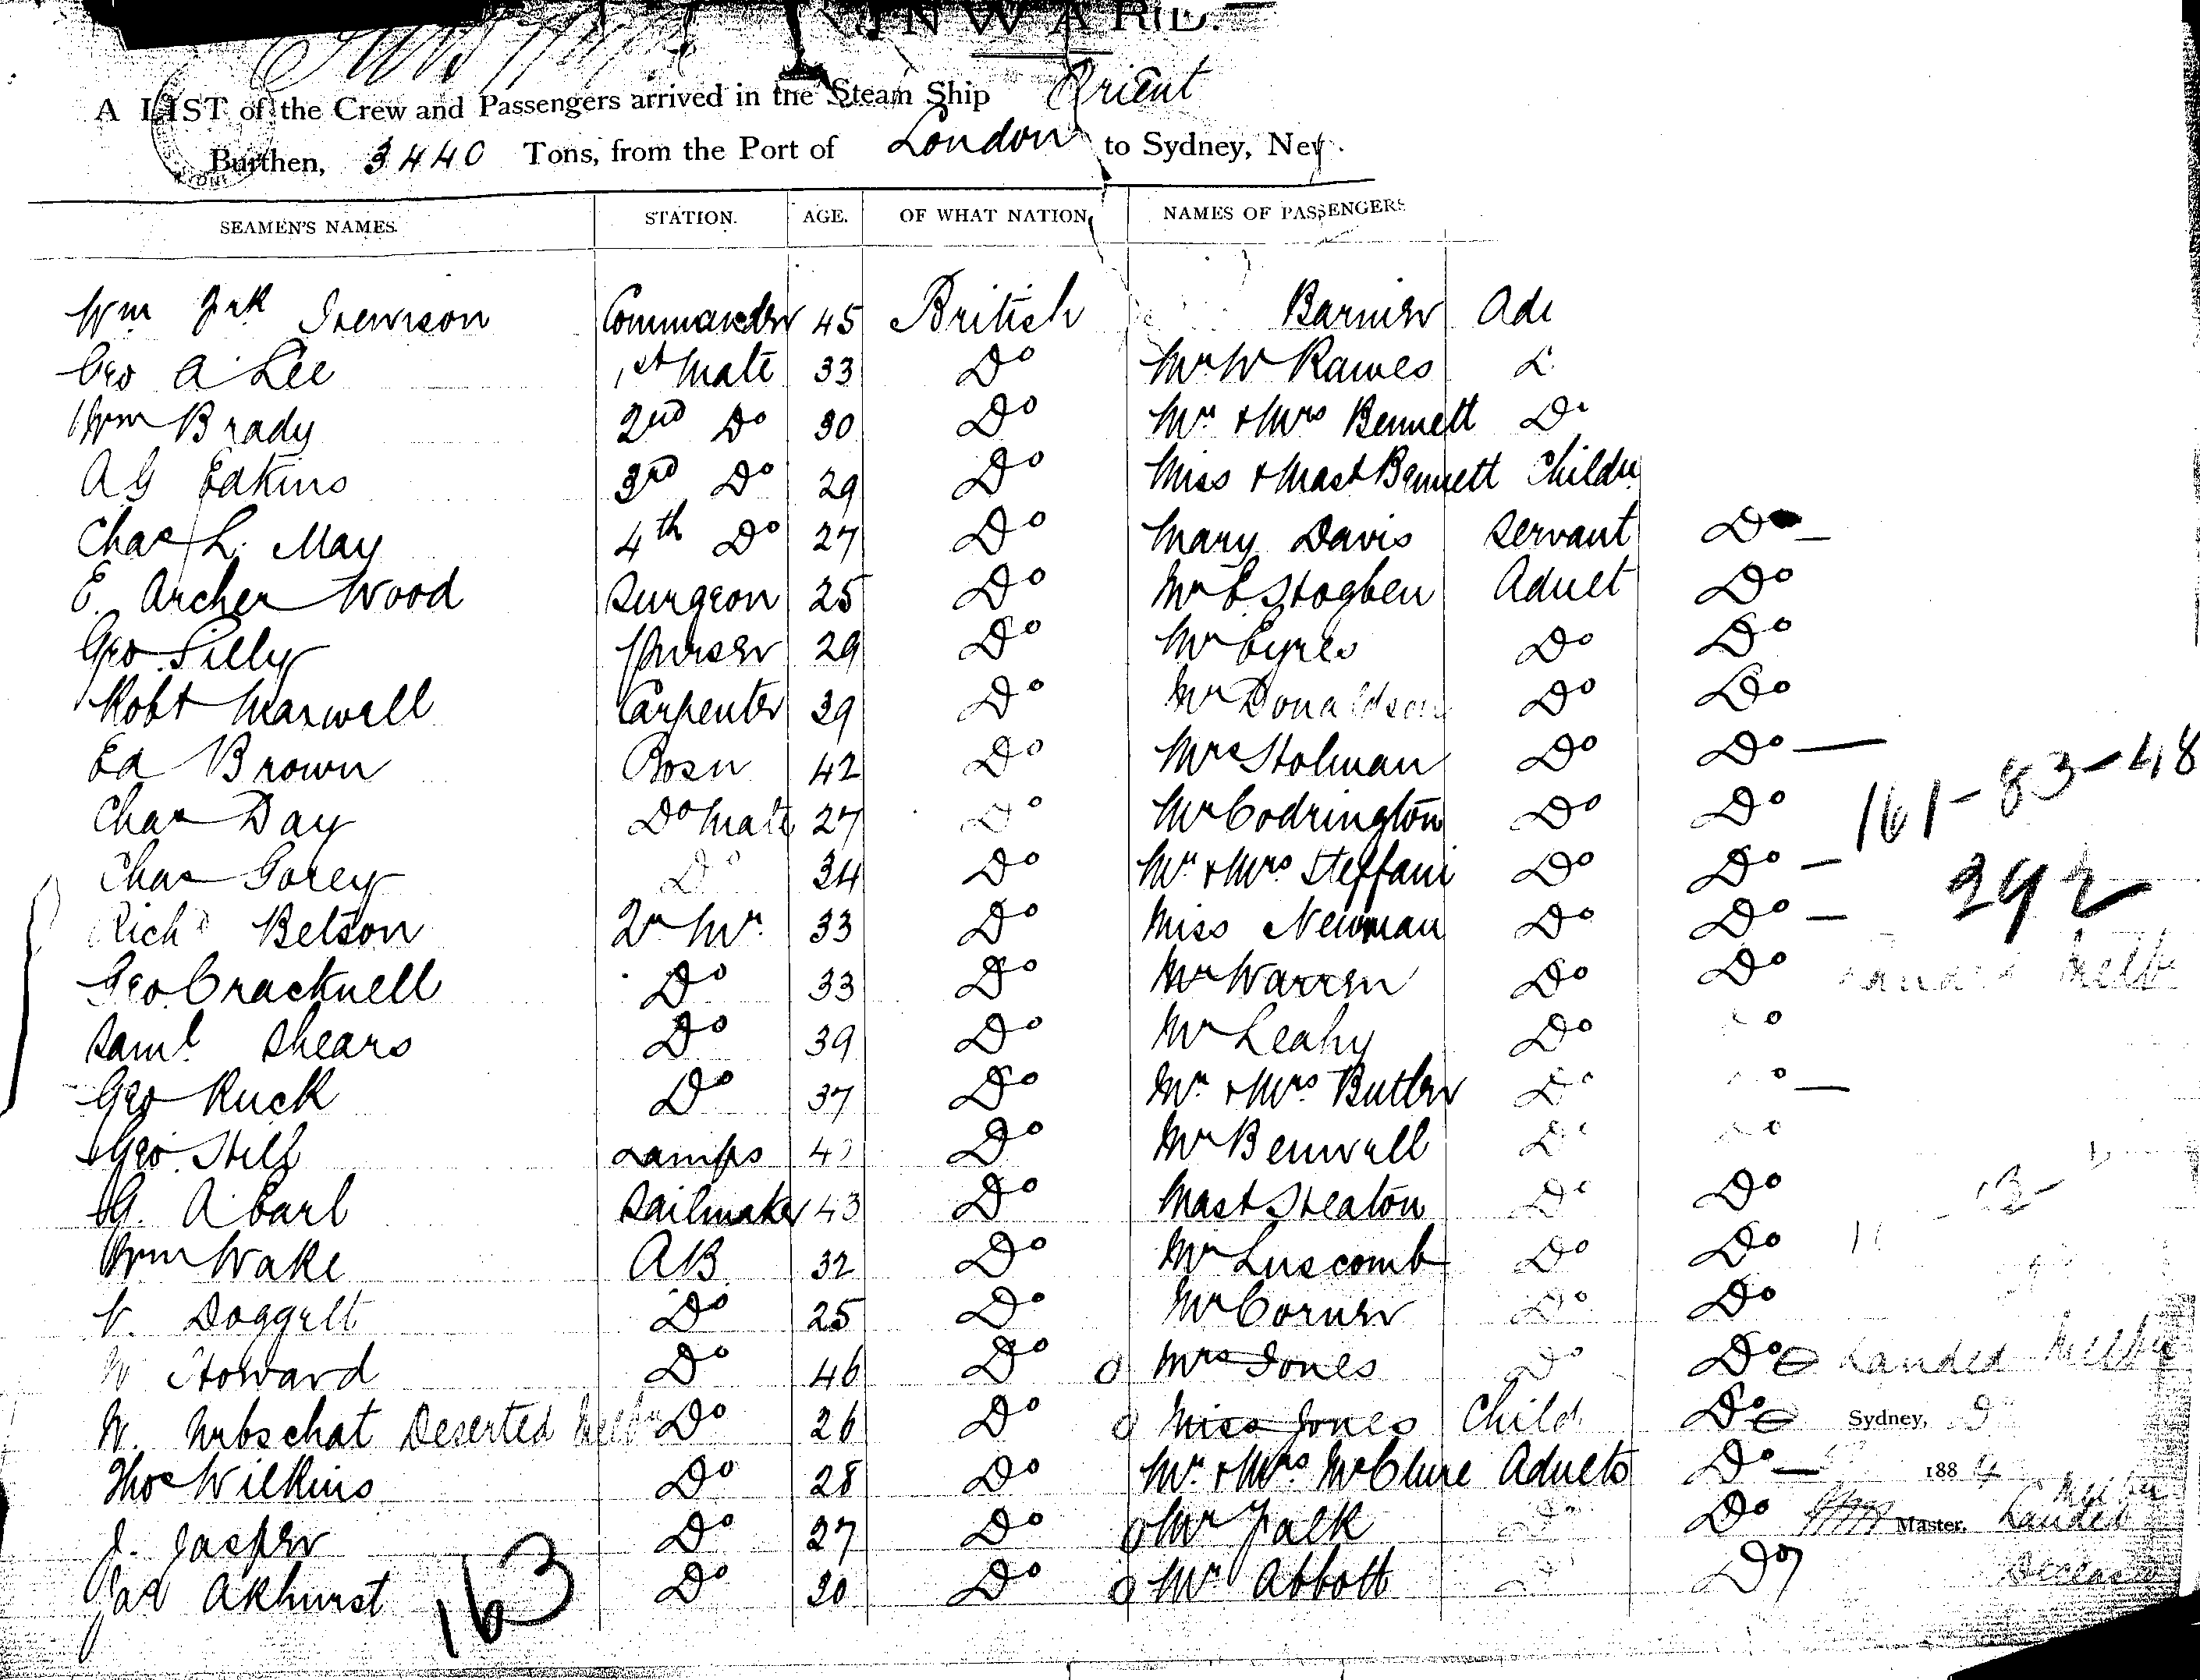 INWARD.
A LIST of the Crew and Passengers arrived in the Steam Ship Orient
Burthen, 3440 Tons, from the Port of London to Sydney, New
SEAMEN'S NAMES. STATION. AGE. OF WHAT NATION. NAMES OF PASSENGERS
Wm Commander 45 British Barnier Adu
Geo A Lee 1st Mate 33 Do Mr W Rawes
Wm Brady 2nd Do 30 Do Mr & Mrs Bennett Do
A G Eakins 3rd Do 29 Do Miss & Mast Bennett Childn
Chas L. May 4th Do 27 Do Mary Davis Servant Do
E. Archer Wood Surgeon 25 Do Mr E Stogben Adult Do
Geo. Silly Purser 29 Do Mr Eyres Do Do
Robt Maxwell Carpenter 39 Do Mr Donaldson Do Do
Ed Brown Bosn 42 Do Mrs Stolman Do Do —
Chas Day Do Mate 27 Do Mr Codrington Do Do
161-83-48
Chas Gorey Do 34 Do Mr & Mrs Steffani Do Do —
292
Richd Belson 2r Mr. 33 Do Miss Newman Do Do —
Geo. Cracknell Do 33 Do Mr Warren Do Do Landed Melb
Saml Shears Do 39 Do Mr Leahy Do
Geo Ruck Do 37 Do Mr & Mrs Butler Do —
Geo. Still Lamps Do Mr Benwell Do
G. A Earl Sailmaker 43 Do Mast Heaton Do Do
Wm Wake AB 32 Do Mr Luscomb Do Do
V. Doggett Do 25 Do Mr Corner Do Do
W Howard Do 46 Do Mrs Jones Do Do Landed Melbne
W. Urbschat Deserted Melbn Do 26 Do Miss Jones Child Do Sydney,
Thos Wilkins Do 28 Do Mr & Mrs McClure Adults Do — 1884
J. Jasper Do 27 Do Mr Falk Do Do Master. Landed Melbn
Jas Akhurst Do 30 Do Mr Abbott Do Do Deceased
163